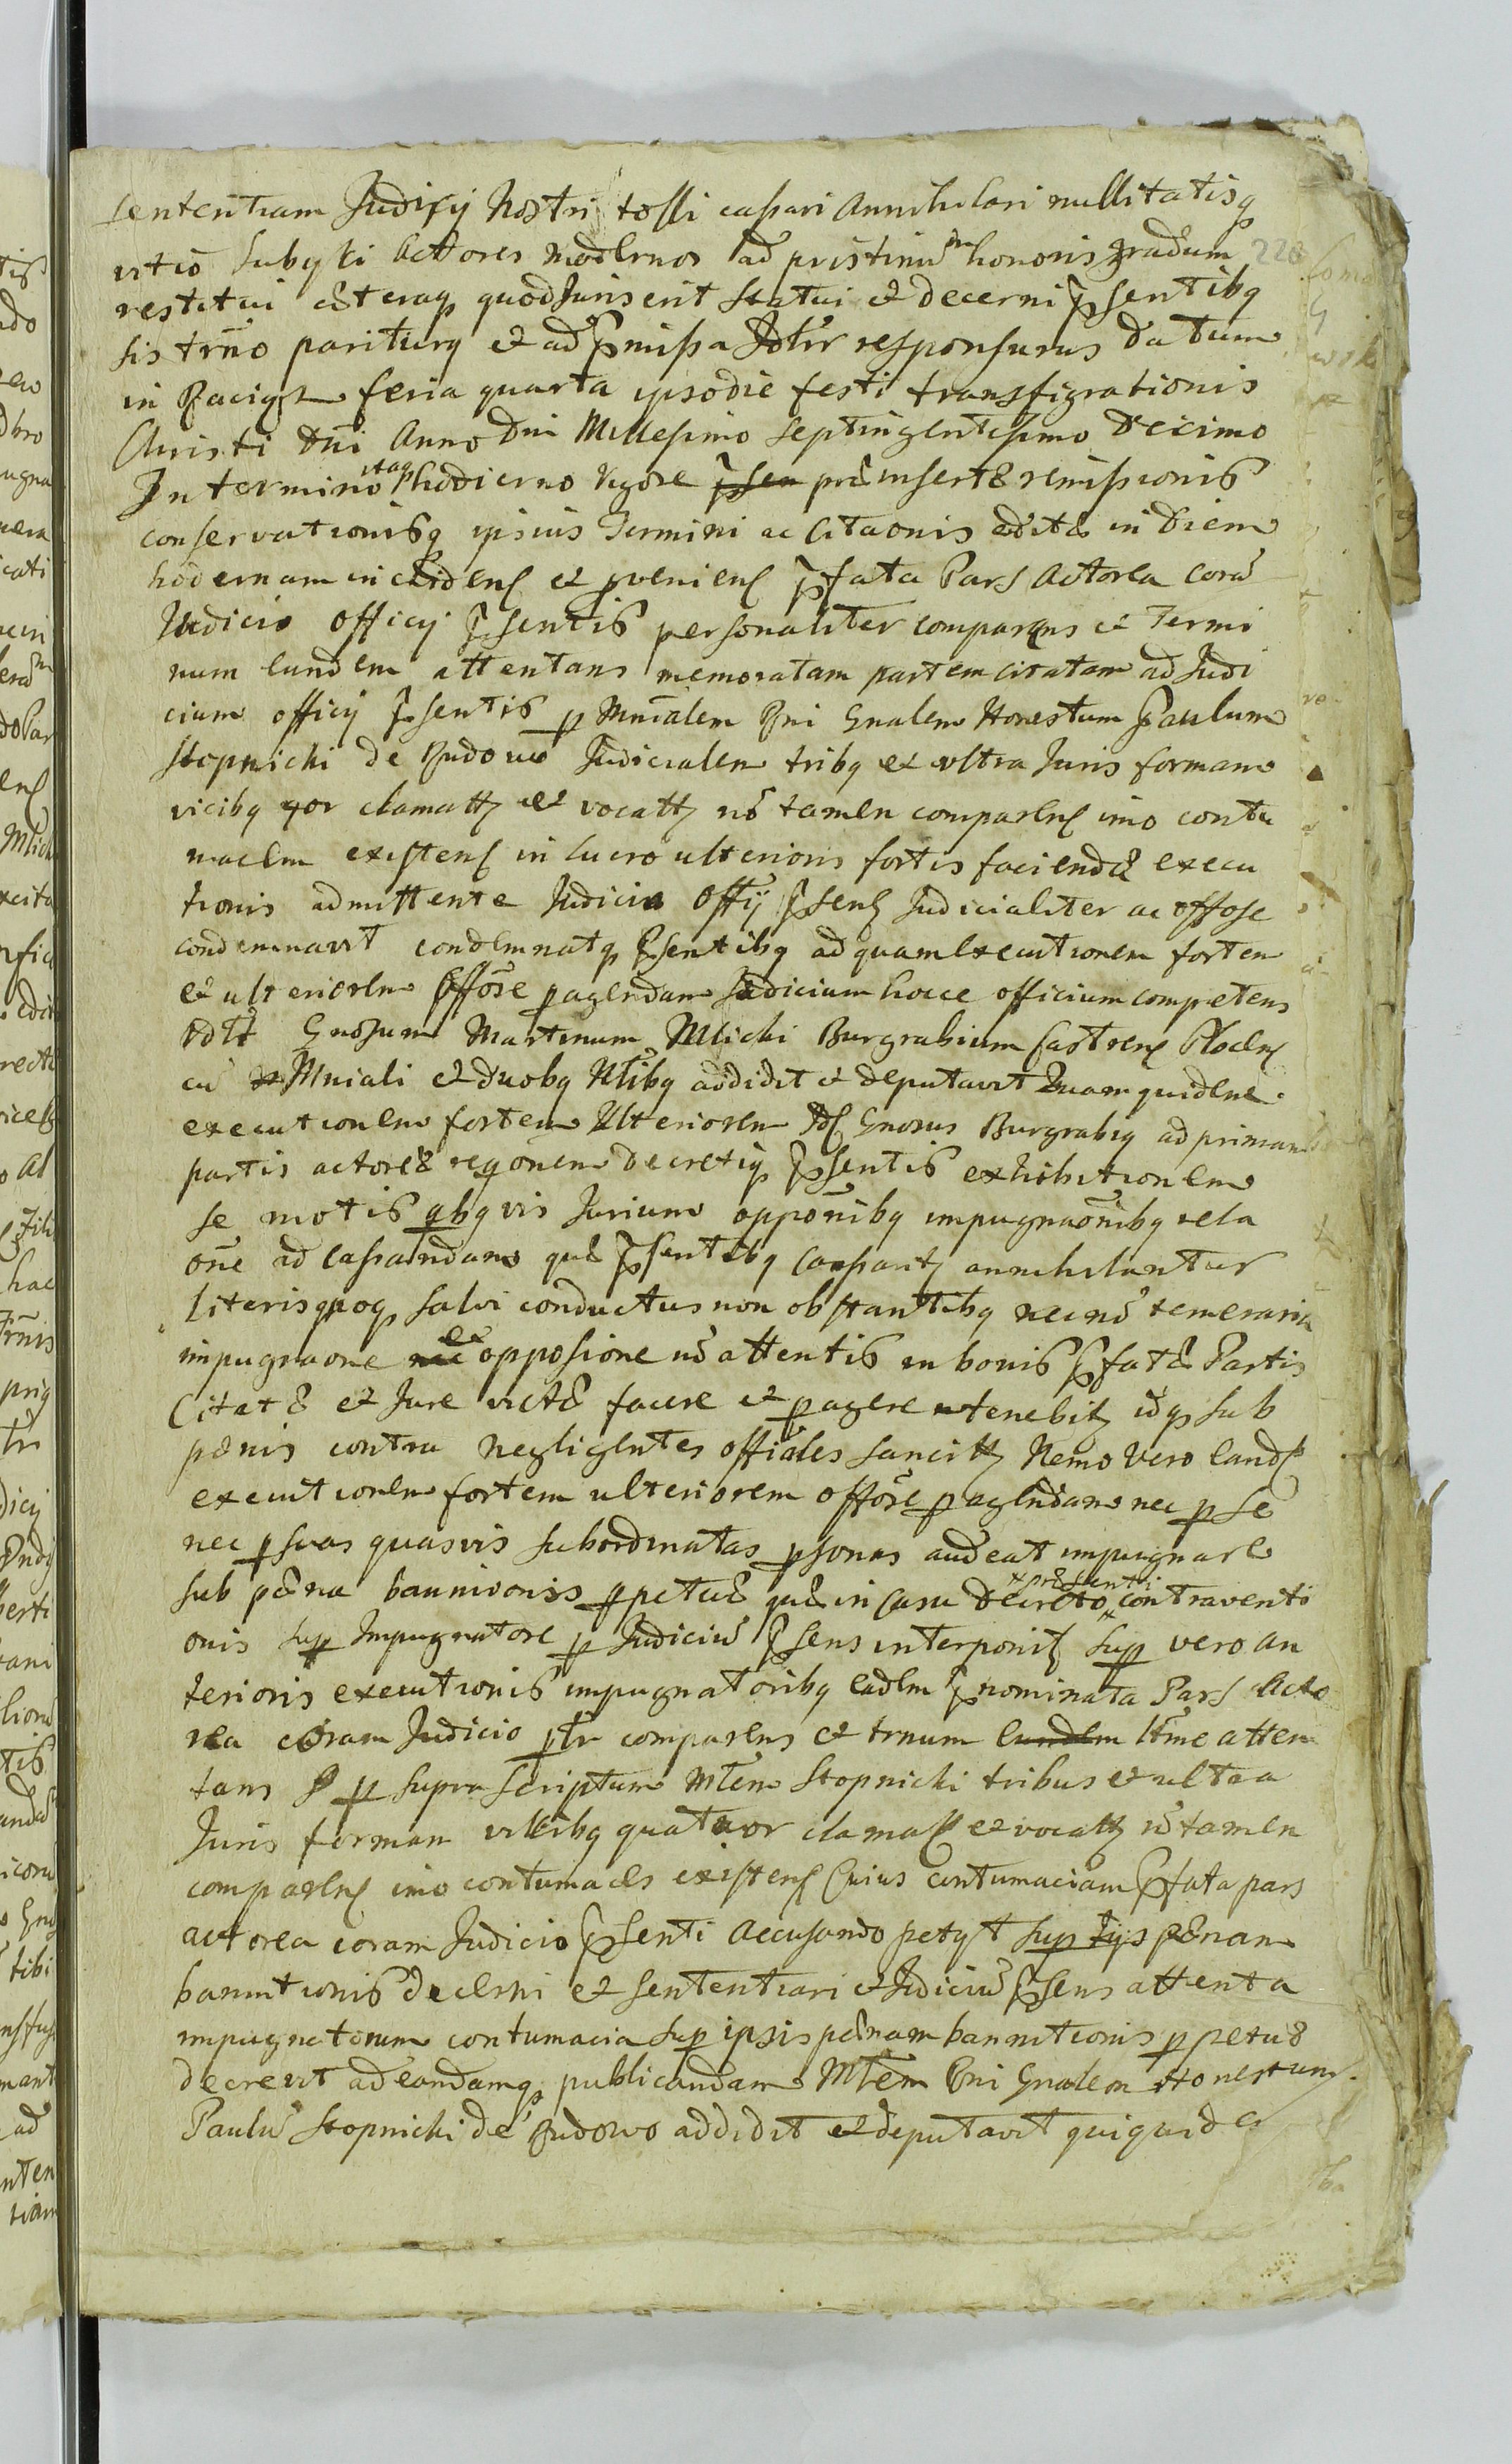 sententiam Judicij Nostri tolli cassari Annihilari nullitatisq
vitio subijci Actores modernos ad pristinũ honoris gradum 220
restitui cæteraq quod Juris erit statui et decerni p̃sentibq
sis trño pariturq et ad p̃missa Jdlr responsurus Datum
in Raciąż feria quarta ipso die festi transfigrationis
Christi Dñi Anno Dñi Millesimo Septingentesimo Decimo
In termino itaq hodierno Vigore præinsertæ remissionis
conservationisq ipsius Termini ac Citaonis editæ in Diem
hodiernam incidens et pveniens p̃fata Pars Actorea corã
Judicio Officij p̃sentis personaliter comparens et Termi
num eundem attentans memoratam partem citatam ad Judi
cium officij p̃sentis p Mnialem Rni Gnalem Honestum Paulum
Stopnicki de Rudowo Judicialem tribq et ultra Juris formam
vicibq 4or clamatt et vocatt nõ tamen comparens imo contu
macem existens in lucro ulterioris fortis faciendæ execu
tionis admittente Judicio Offij p̃sens Judicialiter ac offose
condemnavit condemnatq p̃sentibq ad quam executionem fortem
et ulteriorem offõse pagendam Judicium hocce officium competens
Gnosum Martinum Mlicki Burgrabium Castrens Plocens
cũ Mniali et duobq Nlibq addidit et deputavit Quam quidem
executionem fortem Ulteriorem Gnosus Burgrabiq ad primam
partis actoreæ reqonem decretiq p̃sentis exhibitionem
se motis qbqvis Jurium oppoñibq impugnaoñibq rela
oñe ad cassandam quæ p̃sentibq cassantr annihilantur
literisqoq salvi conductus non obstantibq necnõ temeraria
impugnaone et opposione nõ attentis in bonis p̃fatæ Partis
Citatæ et Jure victæ facere et pagere tenebitr idq sub
pœnis contra negligentes offiales sancitt Nemo Vero eand
executionem fortem ulteriorem offõse pagendam nec p se
nec p suas quasvis subordinatas psonas audeat impugnare
sub pœna bannitionis ppetuæ quæ in casu Decreto præsenti contraventi
onis sup Impugnatore p Judiciũ p̃sens interponitr sup vero an
terioris executionis impugnatoribq eadem p̃nominata Pars Acto
rea coram Judicio ptr comparens et trnum eundem ltme atten
tans p supra scriptum Mlem Stopnicki tribus et ultra
Juris formam vicibq quatuor clamatt et vocatt nõ tamen
comparens imo contumaces existens Cuius contumaciam p̃fata pars
actorea coram Judicio p̃senti Accusando petyt sup ijs pœnam
bannitionis decerni et sententiari et Judiciũ p̃sens attenta
impugnatorum contumacia sup ipsis pœnam bannitionis ppetuæ
decrevit ad eandamq publicandam Mlem Rni Gnalem Honestum
Paulũ Stopnicki de Rudowo addidit et deputavit qui quidem